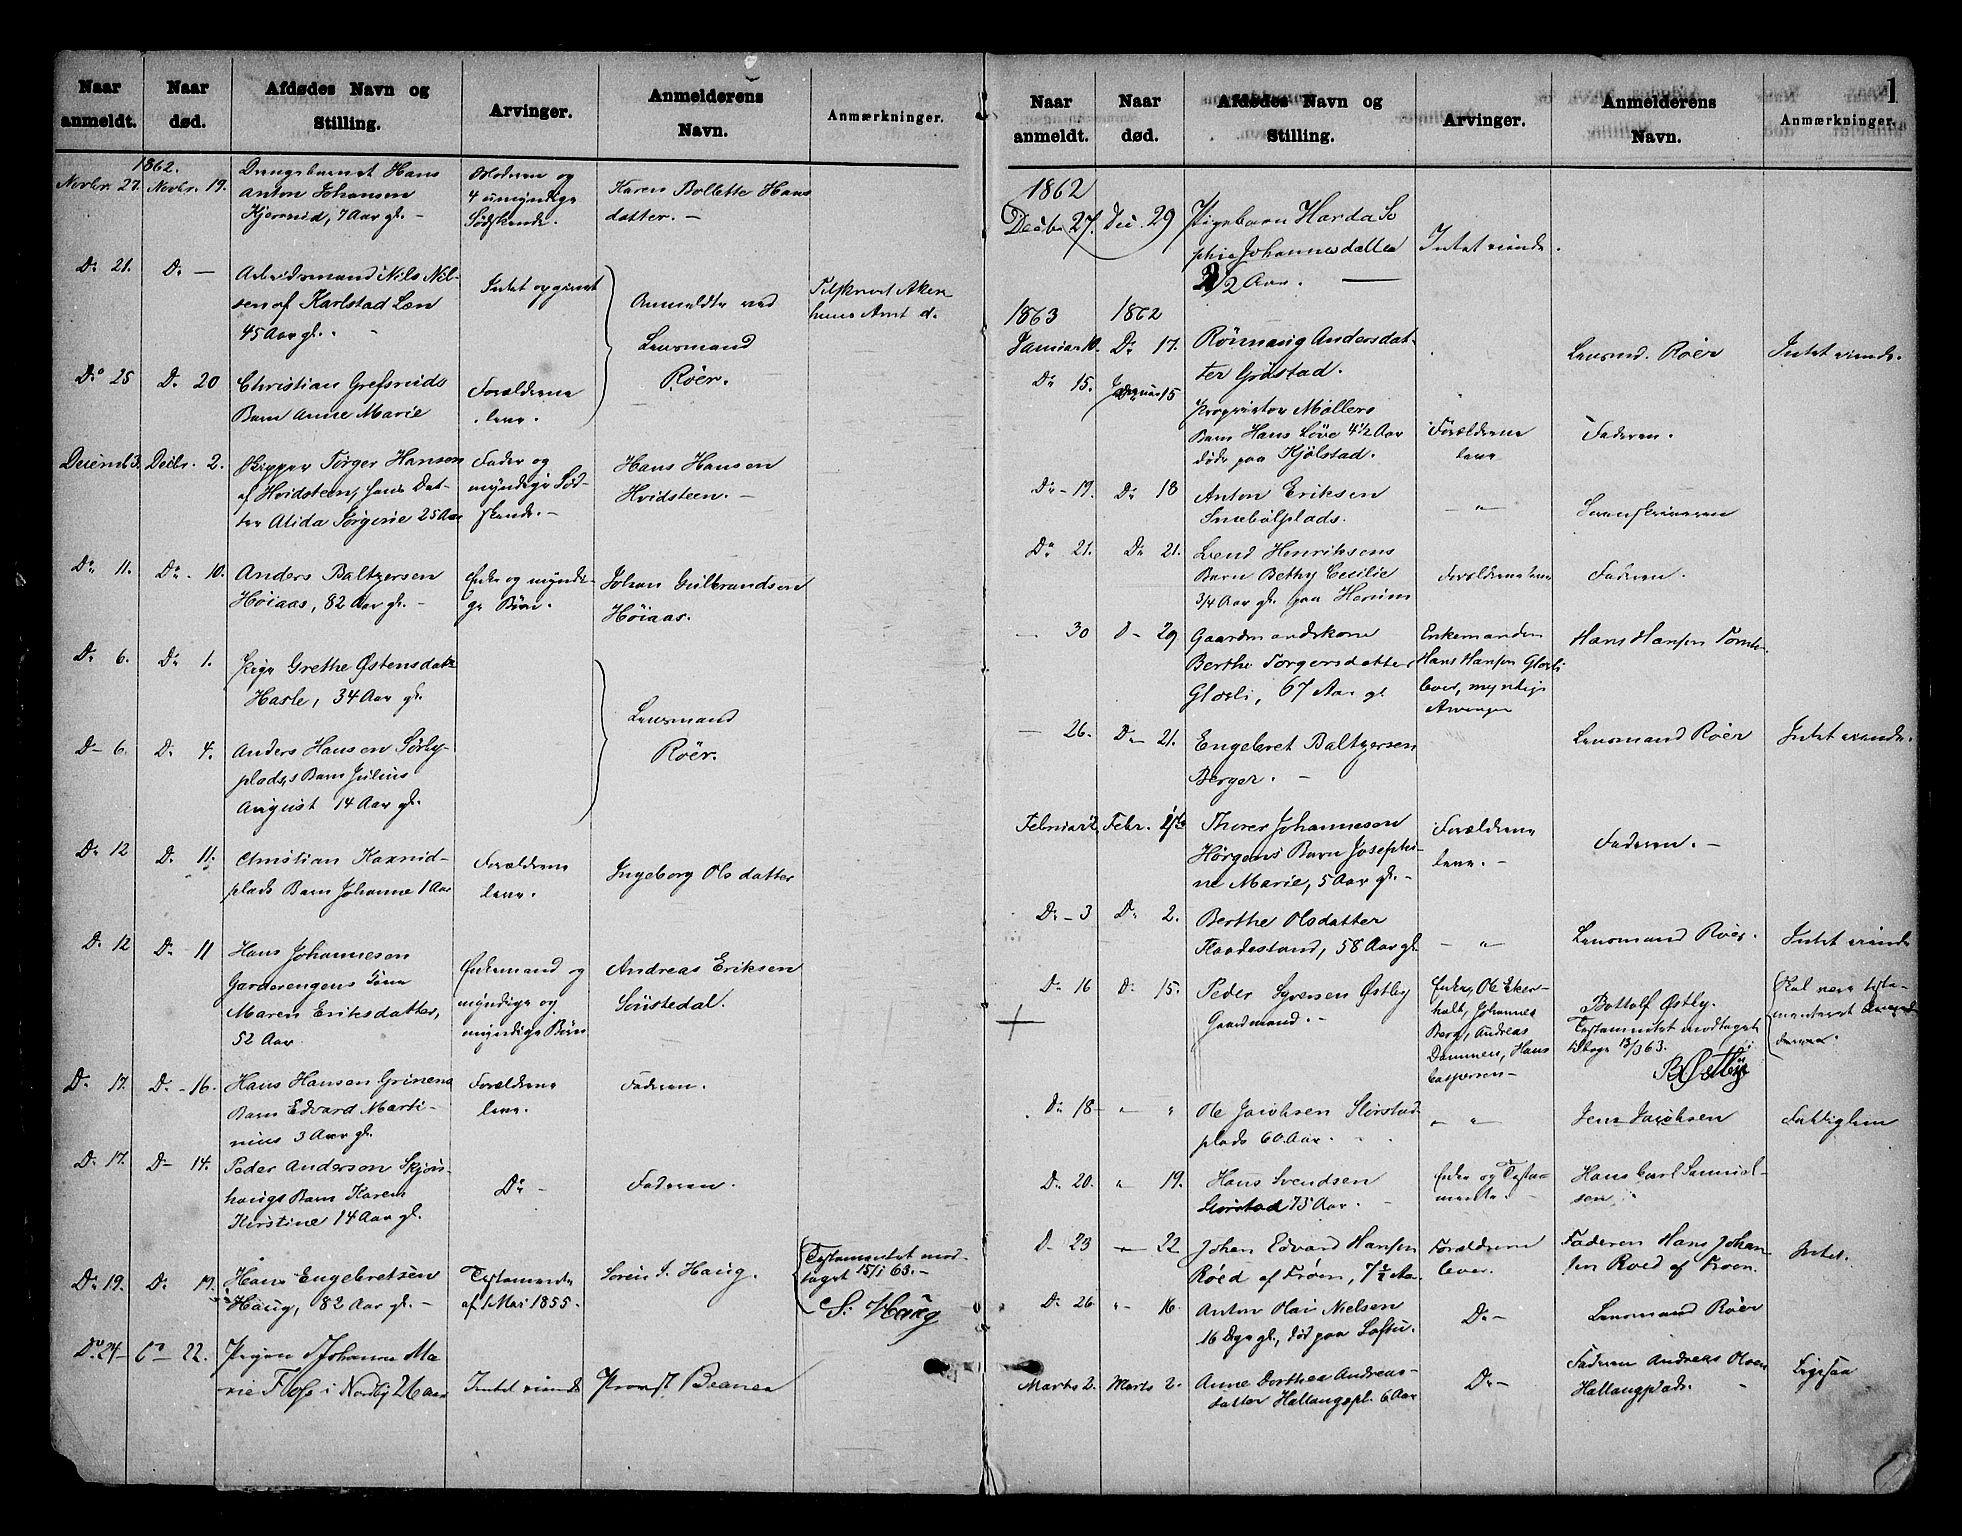 Naar anmeldt.
Naar død.
Afdødes Navn og Stilling.
Arvinger.
Anmelderens Navn.
Anmærkninger.
1862.
Novbr. 27. Novbr. 19.
Drengebarnet Hans
Anton Johansen
Kjernud, 7 Aar gl. –
Moderen og
4 umyndige
Sødskende.
Karen Bollette Hans
datter. –
Do 21. Do —
Arbeidsmand Nils Nil-
sen af Karlstad Læn
45 Aar gl. –
Intet opgivet
Anmeldte ved
Lensmand
Röer.
Tilskrevet Aker
huus Amt d.
Do 25 Do 20
Christian Grefsruds
Barn Anne Marie
Forældrene
leve.
Decemb 3. Decbr. 2.
Skipper Törger Hansen
af Hvidsteen, hans Dat-
ter Alida Törgine 25 Aar
Fader og
myndige Sød-
skende. –
Hans Hansen
Hvidsteen. –
Do 11. Do – 10.
Anders Baltzersen
Höiaas, 82 Aar gl. –
Enke og myndi-
ge Börn.
Johan Gulbrandsen
Höiaas.
Do 6. Do 1.
Pige Grethe Østensdatr
Hasle, 34 Aar gl.
Lensmand
Röer.
Do 6. Do 4.
Anders Hansen Sörby-
pladss Barn Julius
August 14 Aar gl.
Do 12 Do 11.
Christian
plads Barn Johanne 1 Aar
Forældrene
leve.
Ingeborg Olsdatter
Do 12 Do 11
Hans Johannesen
Garderengens Kone
Maren Eriksdatter,
52 Aar
Enkemand og
myndige og
umyndige Börn
Andreas Eriksen
Sönstedal.
Do 17. Do – 16.
Hans Hansen Grinens
Barn Edvard Marti-
nius 3 Aar gl.
Forældrene
leve.
Faderen.
Do 17. Do – 14.
Peder Andersen Skjöns-
haugs Barn Karen
Kirstine 14 Aar gl.
Do –
Faderen.
Do 19. Do 17.
Hans Engebretsen
Haug, 82 Aar gl. –
Testamente
af 1 Mai 1855.
Sören J. Haug.
Testamentet mod-
taget 15/1 63. –
S: Haug
Do 24 – Do – 22.
Pigen Johanne Ma
rie Flose i Nordby 26 aar
Intet eiende
Provst
1
Naar anmeldt.
Naar død.
Afdødes Navn og Stilling.
Arvinger.
Anmelderens Navn.
Anmærkninger.
1862
Decbr 27. Dec. 29
Pigebarn Harda So
phie Johannesdatter
1/2 Aar. —
Intet eiende.
1863 1862
Januar 10. Do 17.
Rönnaug Andersdat-
ter Gröstad.
Lensmd. Röer
Intet eiende.
Do 15. Januar 15
Proprietær Möllers
Barn Hans Löve 4 1/2 Aar
döde paa Kjölstad.
Forældrene
leve
Faderen.
Do – 19. Do 18
Anton Eriksen
Smeböl plads.
– " –
Sorenskriveren
Do 21. Do 21.
Lend Henriksens
Barn Bethy Cecilie
3/4 Aar gl. paa Horum
Forældrene leve
Faderen.
— 30 D – 29
Gaardmandskone
Berthe Torgersdatter
Glosli, 67 Aar gl
Enkemanden
Hans Hansen Glosli
lever, myndige
Arvinger
Hans Hansen Tomte.
— 26. Do – 21.
Engebret Baltzersen
Berger. –
Lensmand Röer
Intet eiende.
Februar 2. Febr. 1ste
Thorer Johannesen
Hörgens Barn Josephi-
ne Marie, 5 Aar gl. –
Forældrene
leve. –
Faderen. –
Do – 3 Do 2.
Berthe Olsdatter
Flaadestand, 58 Aar gl.
– " –
Lensmand Röer.
Intet eiende
Do 16 Do 15.
Peder Syversen Østby
Gaardmand. –
Enke, Ole Eker-
holt, Johannes
Berg, Andreas
Dammen, Hans
Caspersen –
Bottolf Østby.
Testamentet modtaget
tilbage 13/3 63.
B. Østbye
Skal være testa-
menteret
Do 18 – " "
Ole Jacobsen Störstad
plads 60 Aar.
– " –
Jens Jacobsen
Fattiglem
Do 20. " 19.
Hans Svendsen
Störstad 75 Aar.
Enke og Testa-
mente.
Hans Carl Samuel-
sen
Do 23 – 22
Johan Edvard Hansen
Röed af Fröen, 7 1/2 Aar
Forældrene
lever.
Faderen Hans Johan-
sen Roed af Froen.
Intet.
Do 26. " – 16.
Anton Olai Nielsen
16 Dage gl., död paa Softu.
Do –
Lensmand Röer
Marts 2. Marts 2.
Anne Dorthea Andreas-
datter Hallangspl. 6 Aar
Do –
Faderen Andreas Olsen
Hallangplads.
Ligesaa